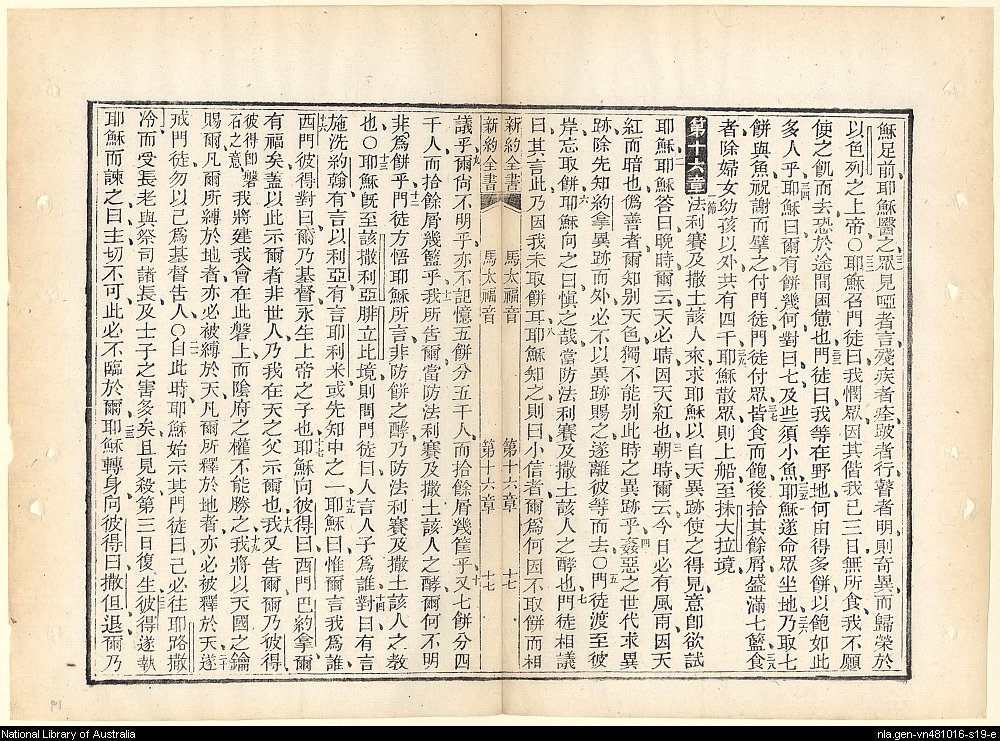 穌足前耶穌醫之眾見啞者言殘疾者痊跛者行瞽者明則奇異而歸榮於
以色列之上帝〇耶穌召門徒曰我憫眾因其偕我已三日無所食我不願
使之飢而去恐於途間困憊也門徒曰我等在野地何由得多餅以飽如此
多人乎耶穌曰爾有餅幾何對曰七及些須小魚耶穌遂命眾坐地乃取七
餅與魚祝謝而擘之付門徒門徒付眾皆食而飽後拾其餘屑盛滿七籃食
者除婦女幼孩以外共有四千耶穌散眾則上船至抹大拉境
第十六章
法利賽及撒土該人來求耶穌以自天異跡使之得見意卽欲試
耶穌耶穌答曰晚時爾云天必晴因天紅也朝時爾云今日必有風雨因天
紅而暗也僞善者爾知別天色獨不能別此時之異跡乎姦惡之世代求異
跡除先知約拿異跡而外必不以異跡賜之遂離彼等而去〇門徒渡至彼
岸忘取餅耶穌向之曰愼之哉當防法利賽及撒土該人之酵也門徒相議
曰其言此乃因我未取餅耳耶穌知之則曰小信者爾爲何因不取餅而相
新約全書 馬太福音 第十六章 十七
新約全書 馬太福音 第十六章 十七
議乎爾尙不明乎亦不記憶五餅分五千人而拾餘屑幾筐乎又七餅分四
千人而拾餘屑幾籃乎我所吿爾當防法利賽及撒土該人之酵爾何不明
非爲餅乎門徒方悟耶穌所言非防餅之酵乃防法利賽及撒土該人之敎
也〇耶穌旣至該撒利亞腓立比境則問門徒曰人言人子爲誰對曰有言
施洗約翰有言以利亞有言耶利米或先知中之一耶穌曰惟爾言我爲誰
西門彼得對曰爾乃基督永生上帝之子也耶穌向彼得曰西門巴約拿爾
有福矣蓋以此示爾者非世人乃我在天之父示爾也我又吿爾爾乃彼得
彼得卽磐石之意
我將建我會在此磐上而陰府之權不能勝之我將以天國之鑰
賜爾凡爾所縛於地者亦必被縛於天凡爾所釋於地者亦必被釋於天遂
戒門徒勿以己爲基督吿人〇自此時耶穌始示其門徒曰己必往耶路撒
冷而受長老與祭司諸長及士子之害多矣且見殺第三日復生彼得遂執
耶穌而諫之曰主切不可此必不臨於爾耶穌轉身向彼得曰撒但退爾乃
National Library of Australia
nla.gen-vn481016-s19-e